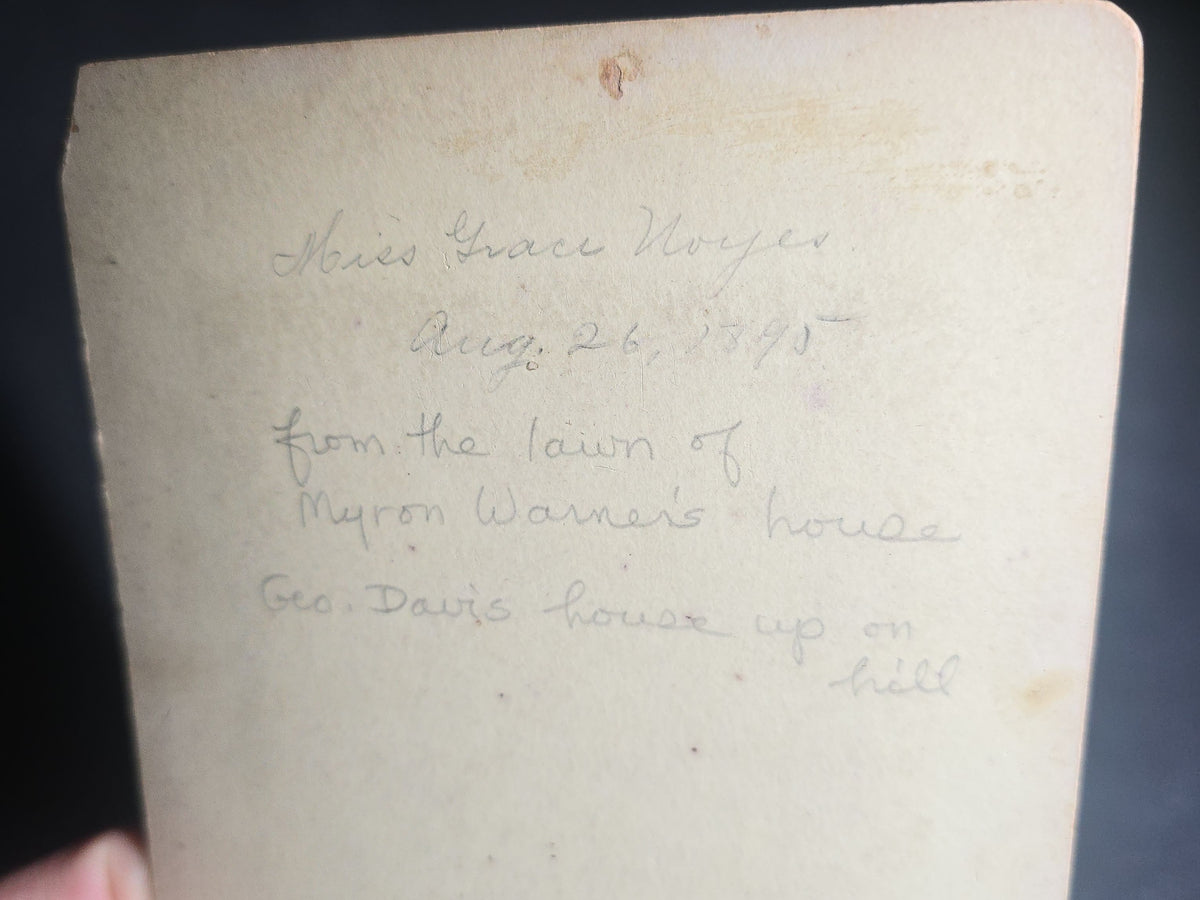 Miss Grace Noyes
Aug. 26, 1895
from the lawn of
Myron Warner's house
Geo. Davis house up on
hill